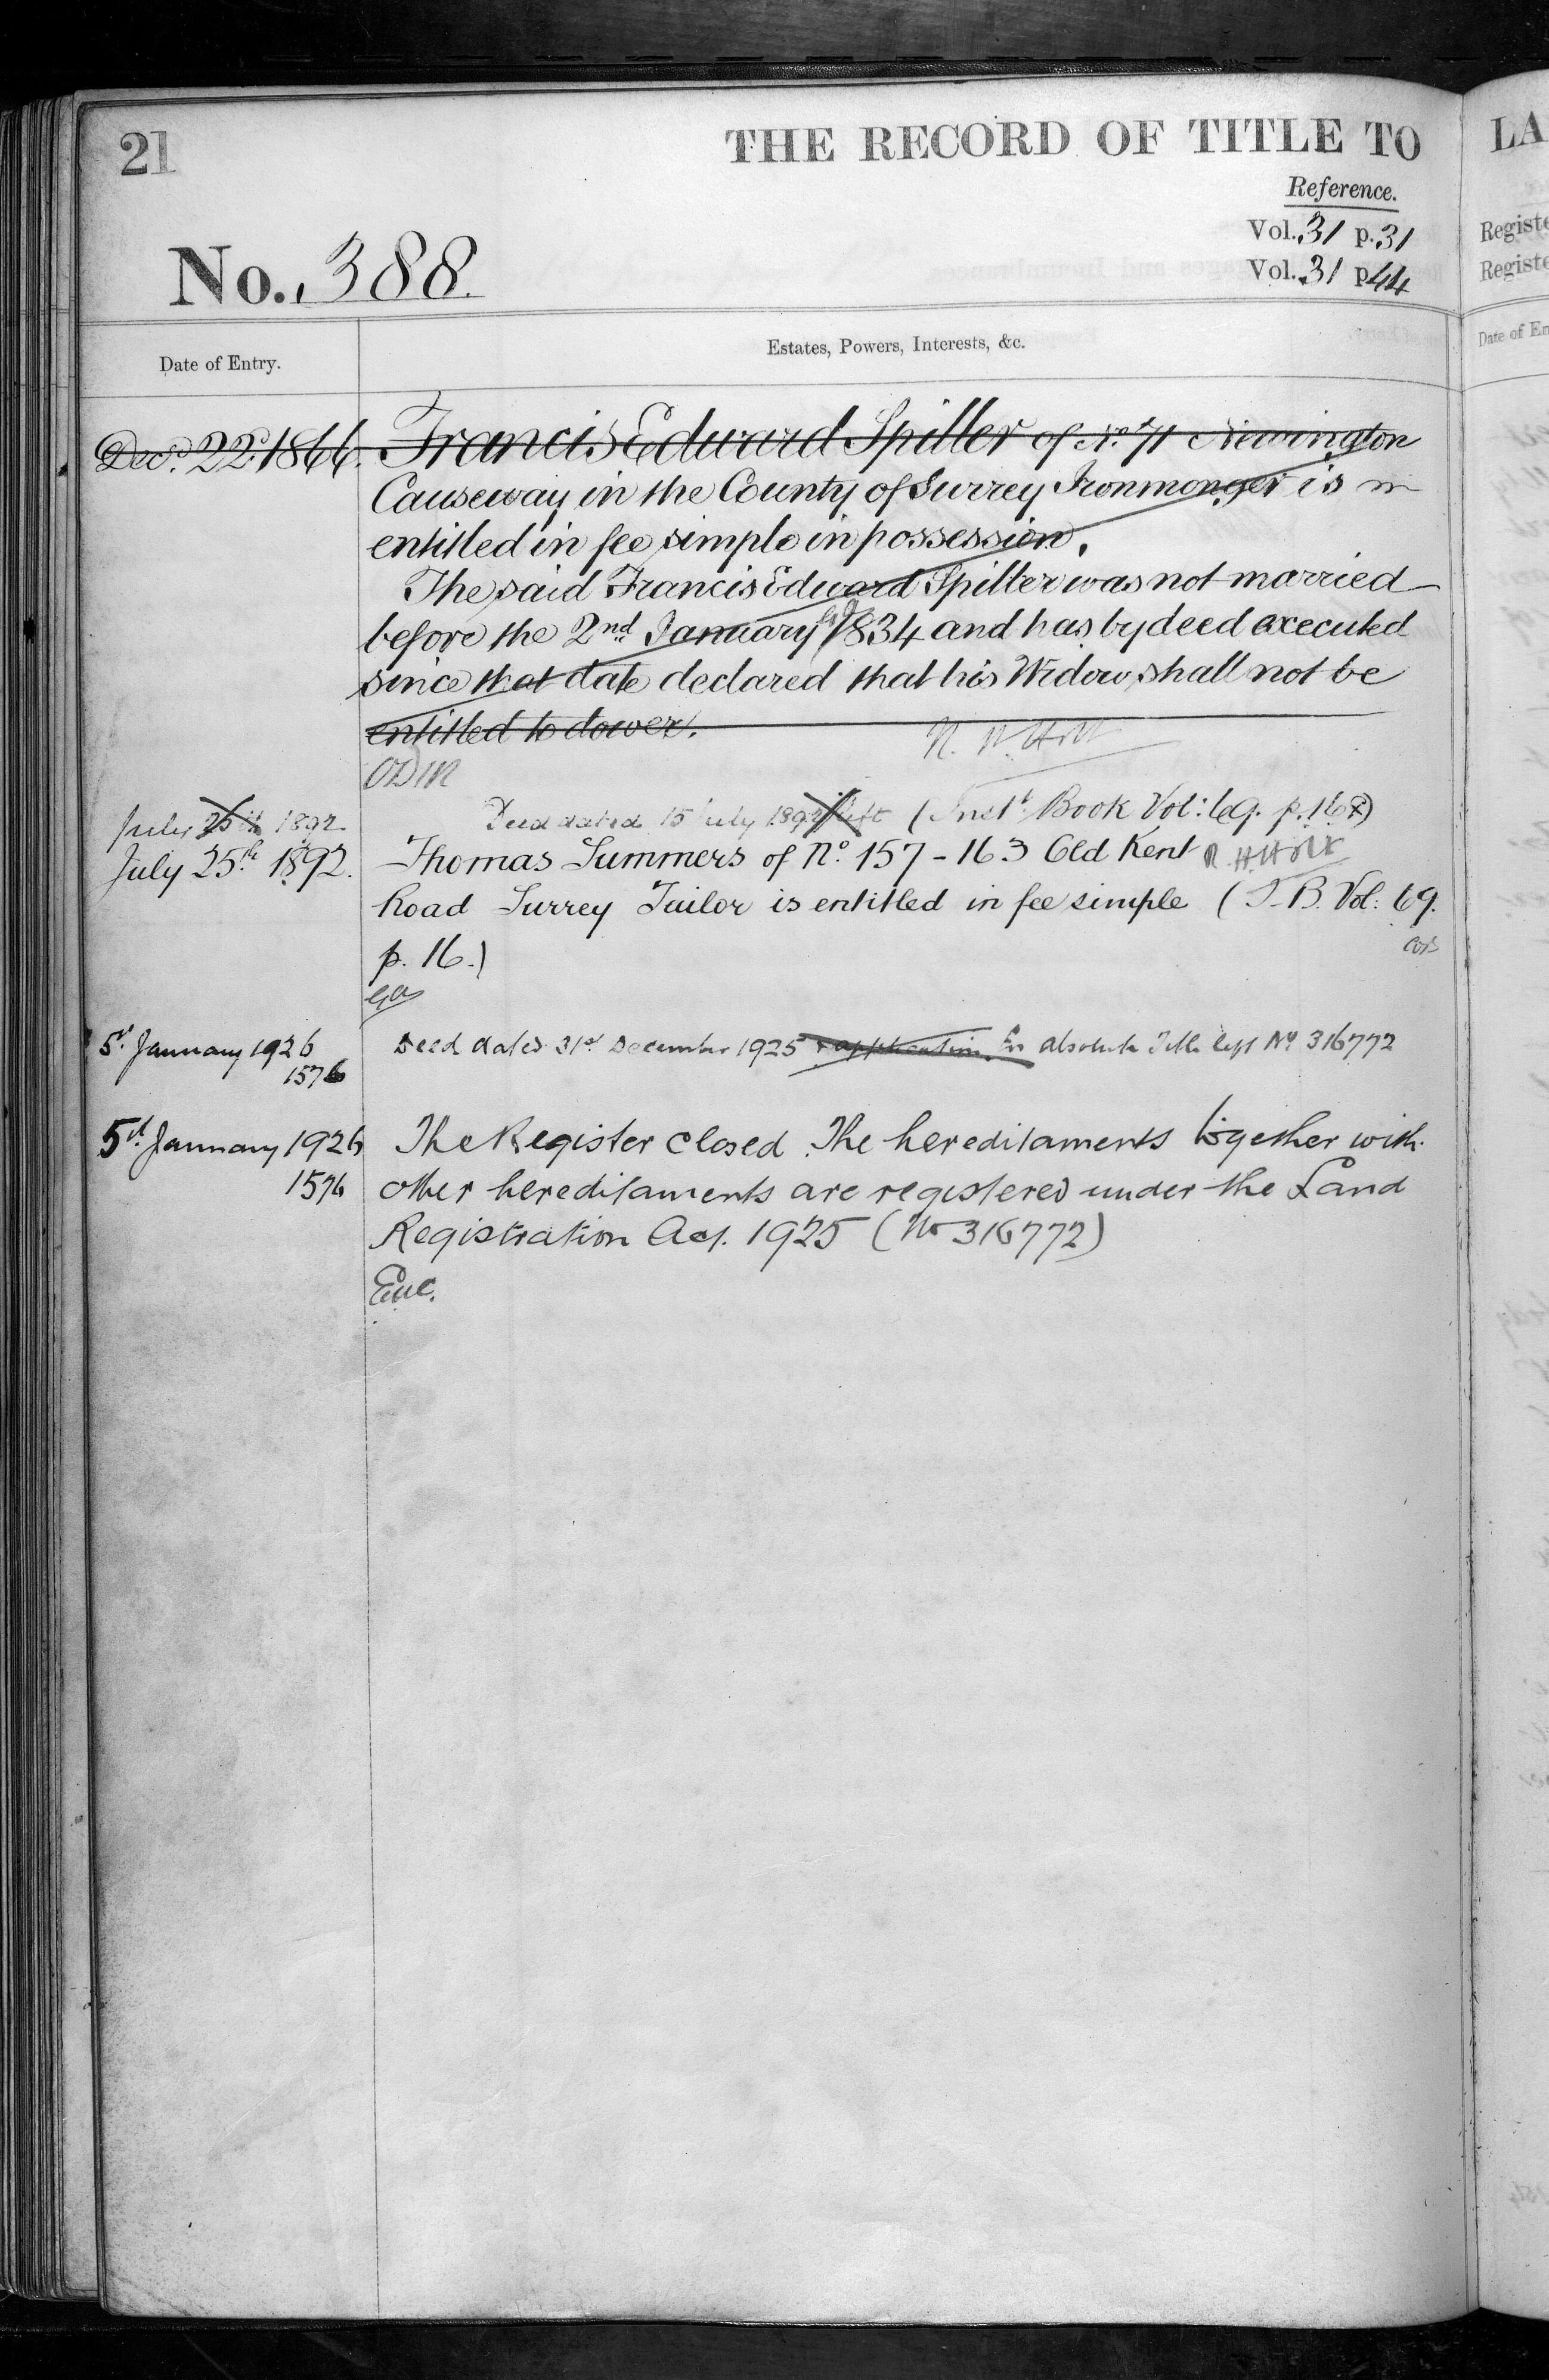 21
THE RECORD OF TITLE TO
Reference.
Vol. 31 p. 31
Vol. 31 p 44
No. 388.
Date of Entry.
Estates, Powers, Interests, &c.
Decr. 22d. 1866. Francis Edward Spiller of No. 71 Newington
Causeway in the County of Surrey Ironmonger is
entitled in fee simple in possession.
The said Francis Edward Spiller was not married
before the 2nd January 1834 and has by deed executed
since that date declared that his Widow shall not be
entitled to dower.
July 25th 1892 Deed dated 15 July 1892 left (Inst. Book Vol: 69. p. 16)
July 25th 1892. Thomas Summers of No. 157-163 Old Kent
Road Surrey Tailor is entitled in fee simple (I.B. Vol: 69.
p. 16.)
5th January 1926 Deed dated 31st December 1925 & application for absolute Title left No 316772
1576
5th January 1926 The Register closed. The hereditaments together with
1576 other hereditaments are registered under the Land
Registration Act. 1925 (No 316772)
LA
Registe
Registe
Date of En